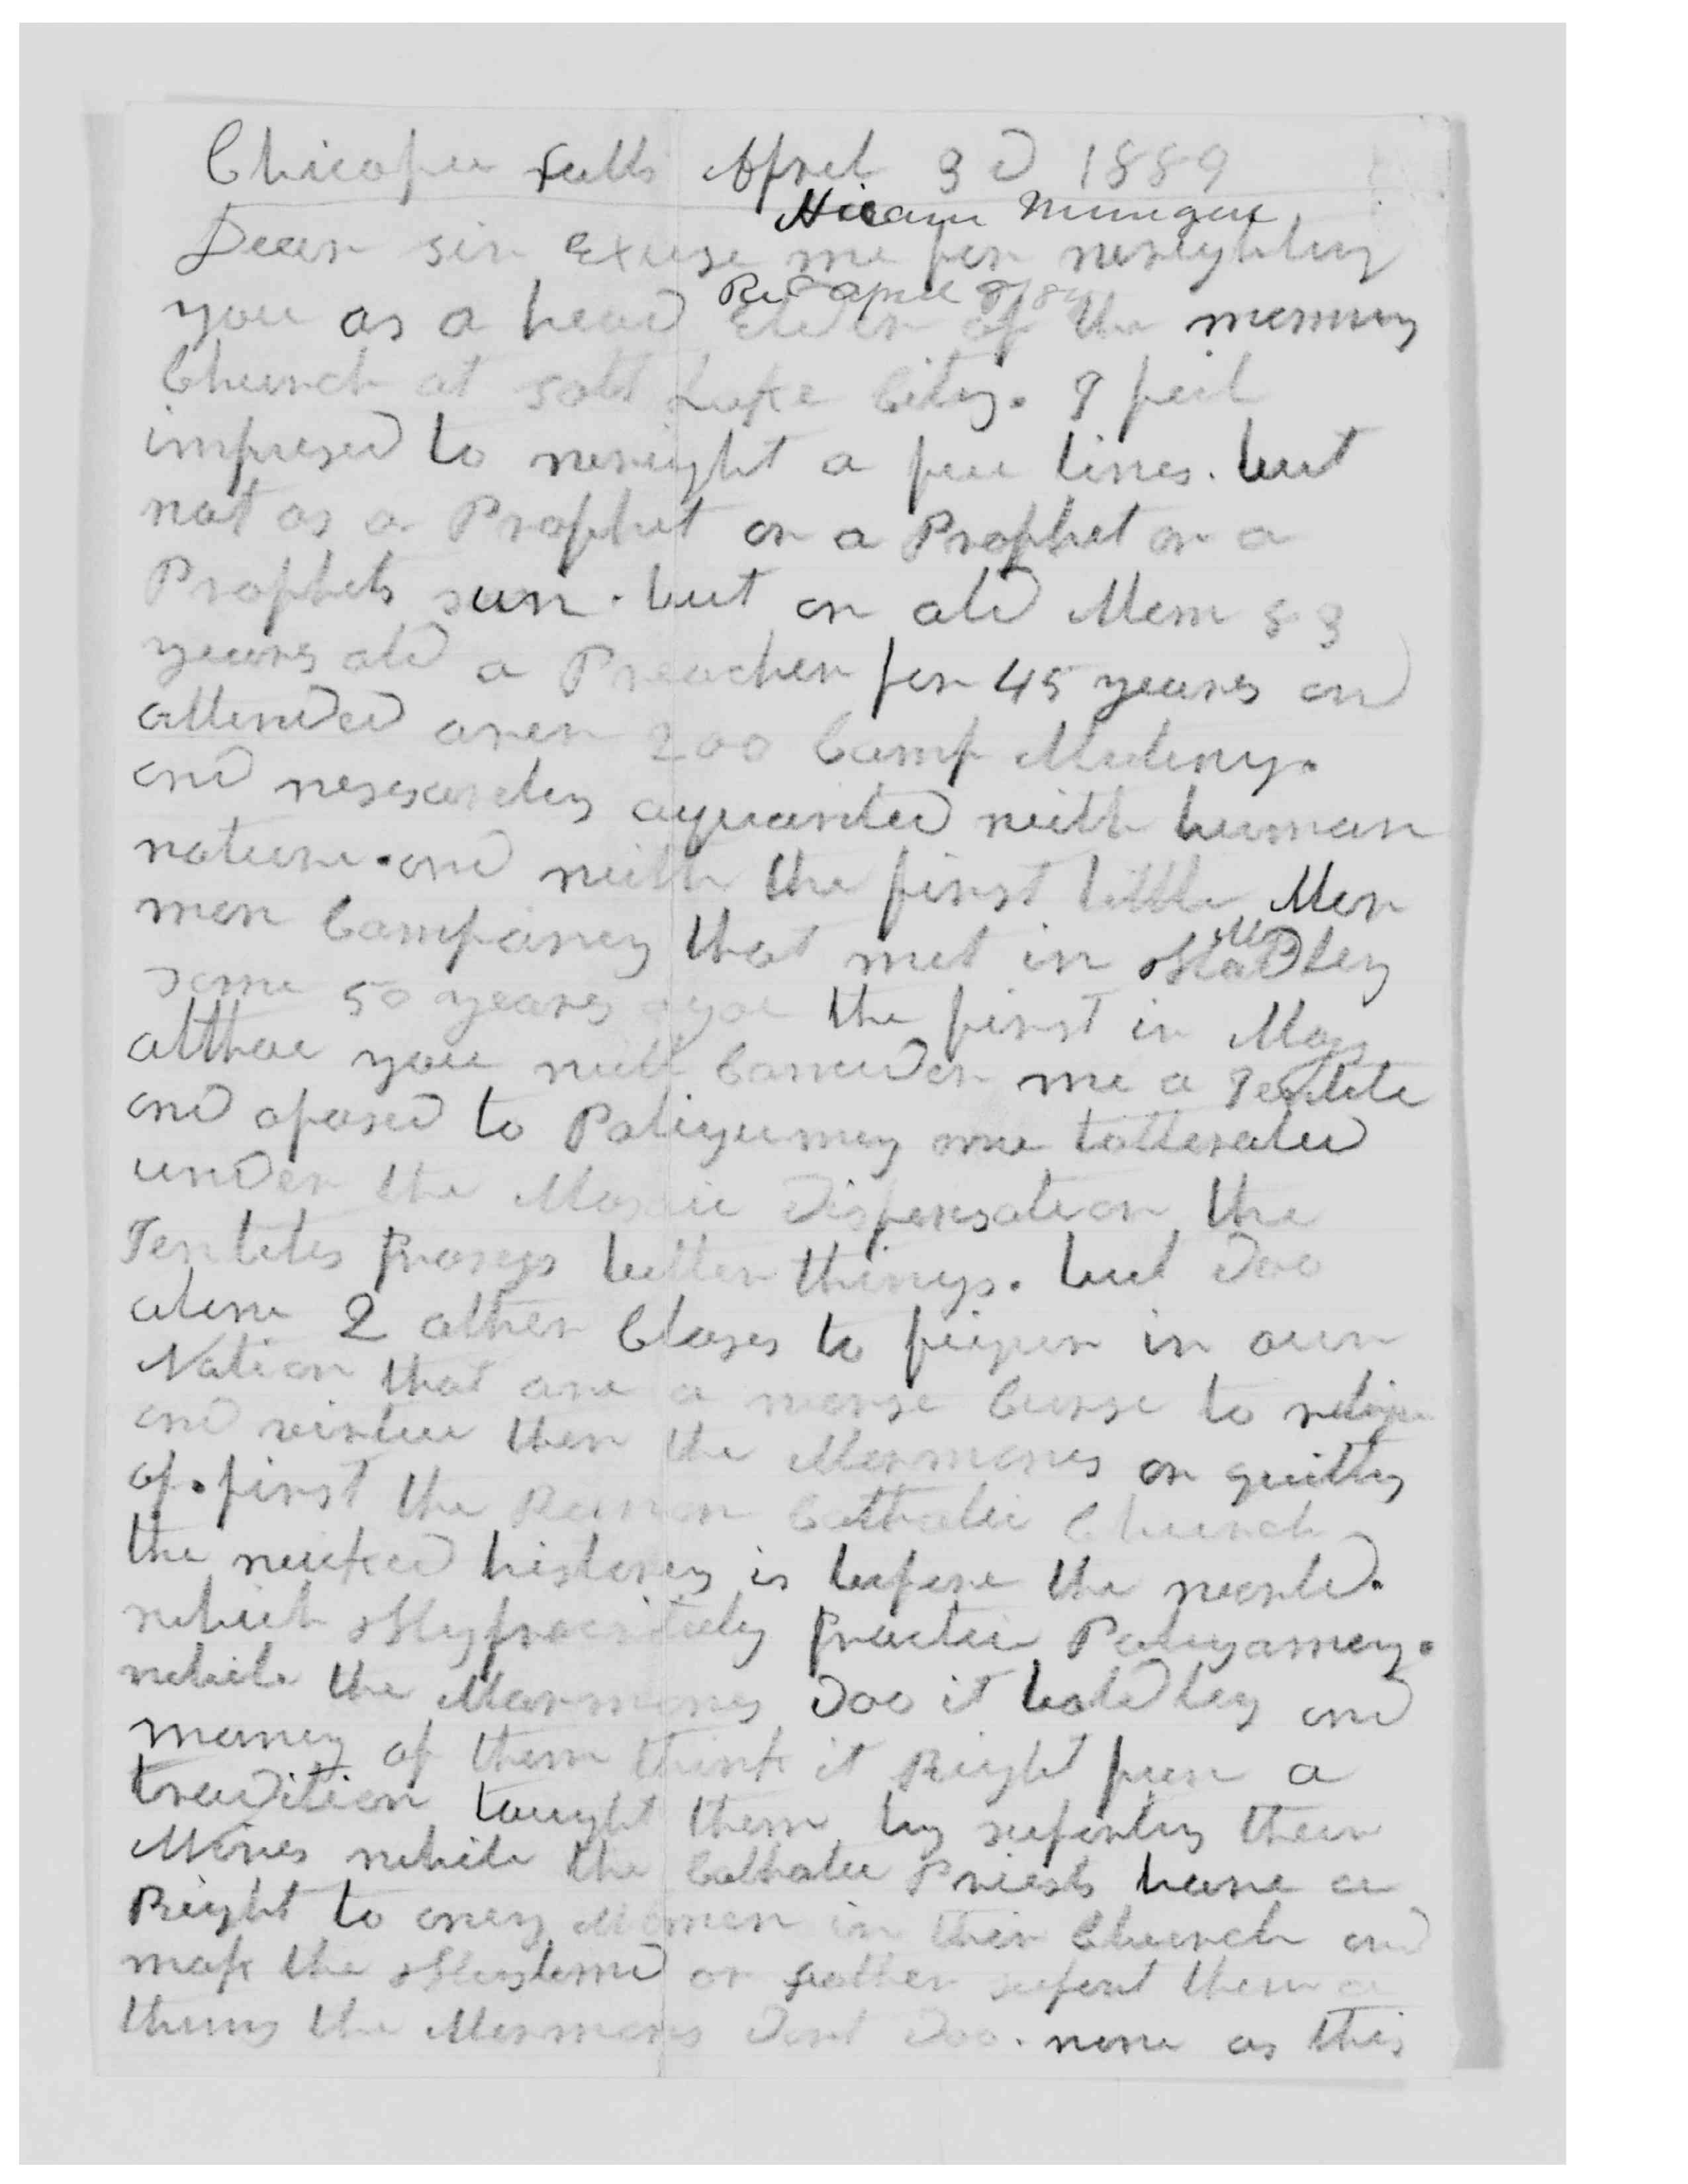 Chicopee Falls Aprel 3D 1889
Hiram Munger
Dear sir Excuse me for wrighting
Rec April 9/89
you as a head Elder of the mormon
Church at Solt Lake City. I feel
impresed to wright a few lines. but
not as a Prophet or a Prophet or a
Prophets sun. but an old Mem 83
years old a Preacher for 45 years and
attended over 200 Camp Meetings.
and nessesareley aquainted with human
nature. and with the first little Mor
mon Company that met in Hadley
some 50 years agoe the first in Mass
althoe you will Concider me a Jentile
and aposed to Poligumey
under the Mosaic Dispensation the
Jentiles Prosess better things. but Doo
alow 2 other Clases to feigur in our
Nation that are a worse Curse to
and virtue then the Mormones or guilty
of. first the Roman Catholic Church
the wicked history is before the world.
which Hypocriticaly practice Poligamey.
while the Mormones Doo it boldley and
maney of them think it Right fur a
tradition taught them by suporting their
Wives while the Catholic Priests have a
Right to aney Women in their Church and
mak the Husbend or father suport them a
thing the Mormons Dont Doo. now as this